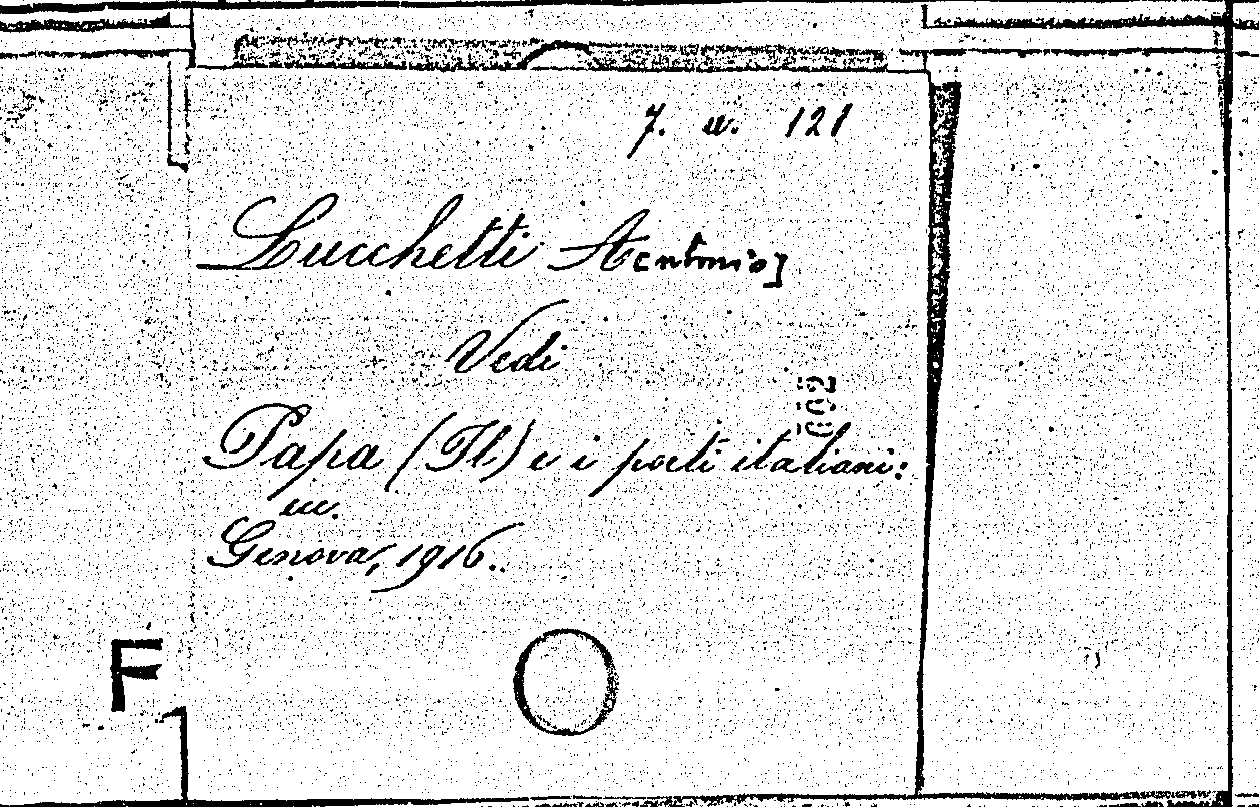 7. w. 121
Lucchetti A[ntonio]
Vedi
Papa (Il) e i poeti italiani:
ecc.
Genova, 1916.
002
F